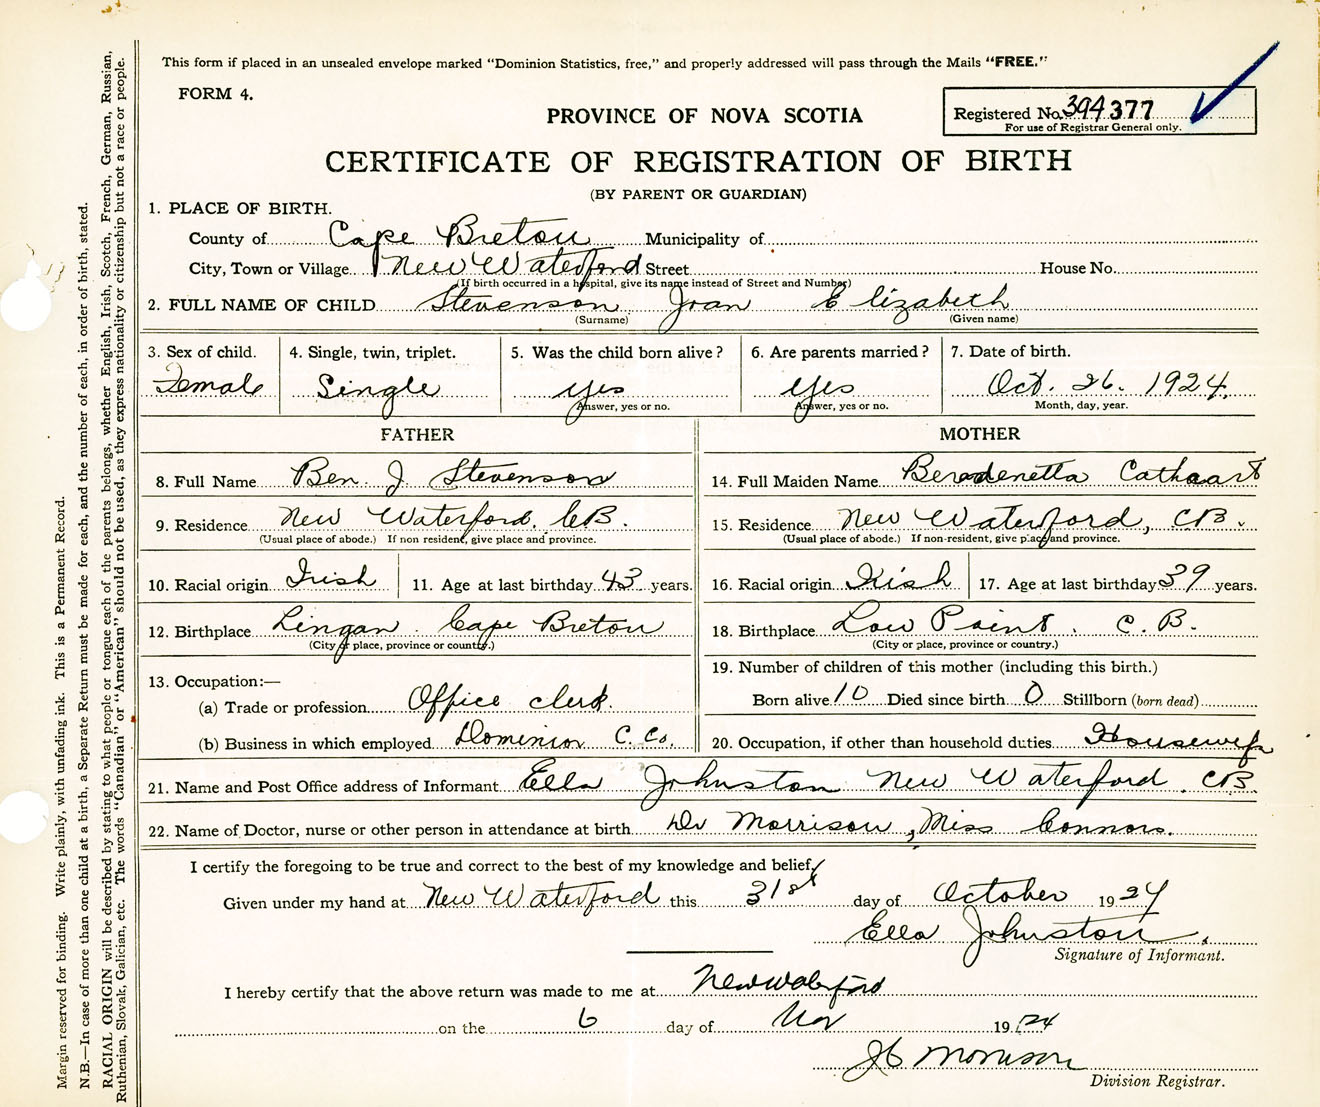 This form if placed in an unsealed envelope marked "Dominion Statistics, free," and properly addressed will pass through the Mails "FREE."
FORM 4.
PROVINCE OF NOVA SCOTIA
Registered No. 394377
For use of Registrar General only.
CERTIFICATE OF REGISTRATION OF BIRTH
(BY PARENT OR GUARDIAN)
1. PLACE OF BIRTH.
County of Cape Breton Municipality of
City, Town or Village New Waterford Street House No.
(If birth occurred in a hospital, give its name instead of Street and Number)
2. FULL NAME OF CHILD Stevenson Joan Elizabeth
(Surname) (Given name)
3. Sex of child. 4. Single, twin, triplet. 5. Was the child born alive? 6. Are parents married? 7. Date of birth.
Female Single yes yes Oct. 26. 1924.
Answer, yes or no. Answer, yes or no. Month, day, year.
FATHER MOTHER
8. Full Name Ben. J Stevenson 14. Full Maiden Name Beradenetta Cathcart
9. Residence New Waterford. C.B. 15. Residence New Waterford, C.B.
(Usual place of abode.) If non resident, give place and province. (Usual place of abode.) If non-resident, give place and province.
10. Racial origin Irish 11. Age at last birthday 43 years. 16. Racial origin Irish 17. Age at last birthday 39 years.
12. Birthplace Lingan. Cape Breton 18. Birthplace Low Point. C.B.
(City or place, province or country.) (City or place, province or country.)
13. Occupation:— 19. Number of children of this mother (including this birth.)
(a) Trade or profession Office clerk. Born alive 10 Died since birth 0 Stillborn (born dead)
(b) Business in which employed Dominion C. Co. 20. Occupation, if other than household duties Housewife
21. Name and Post Office address of Informant Ella Johnston New Waterford. C.B.
22. Name of Doctor, nurse or other person in attendance at birth Dr Morrison, Miss Connors.
I certify the foregoing to be true and correct to the best of my knowledge and belief,
Given under my hand at New Waterford this 31st day of October 1924
Ella Johnston.
Signature of Informant.
I hereby certify that the above return was made to me at New Waterford
on the 6 day of Nov 1924
Morrison
Division Registrar.
Margin reserved for binding. Write plainly, with unfading ink. This is a Permanent Record.
N.B.—In case of more than one child at a birth, a Separate Return must be made for each, and the number of each, in order of birth, stated.
RACIAL ORIGIN will be described by stating to what people or tongue each of the parents belongs, whether English, Irish, Scotch, French, German, Russian,
Ruthenian, Slovak, Galician, etc. The words "Canadian" or "American" should not be used, as they express nationality or citizenship but not a race or people.